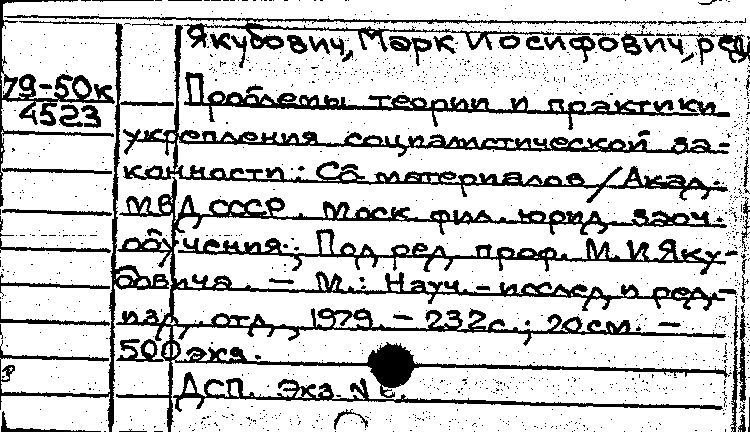 Якубович, Марк Иосифович, ред.
79-50к
4523
Проблемы теории и практики
укрепления социалистической за-
конности: Сб материалов / Акад.
МВД СССР. Моск фил. юрид. заоч.
обучения; Под ред. проф. М.И Яку-
бовича. — М.: Науч.-исслед. и ред.-
изд. отд., 1979. - 232с.; 20см. —
500 экз.
ДСП. Экз. №